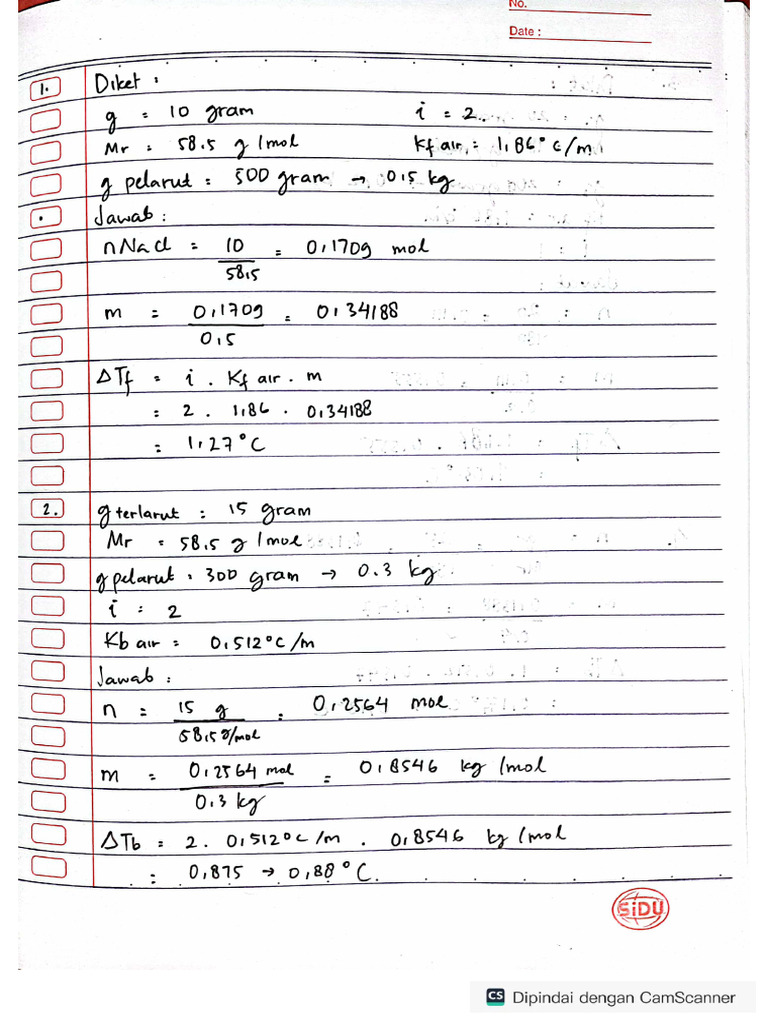 No.
Date :
1. Diket :
g = 10 gram i = 2
Mr = 58.5 g/mol Kf air = 1,86°C/m
g pelarut = 500 gram → 0,5 kg
Jawab :
n NaCl = 10 = 0,1709 mol
58,5
m = 0,1709 = 0,34188
0,5
ΔTf = i . Kf air . m
= 2 . 1,86 . 0,34188
= 1,27°C
2. g terlarut = 15 gram
Mr = 58.5 g/mol
g pelarut = 300 gram → 0.3 kg
i = 2
Kb air = 0,512°C/m
Jawab :
n = 15 g = 0,2564 mol
58,5 g/mol
m = 0,2564 mol = 0,8546 kg/mol
0.3 kg
ΔTb = 2 . 0,512°C/m . 0,8546 kg/mol
= 0,875 → 0,88°C
SiDU
CS Dipindai dengan CamScanner